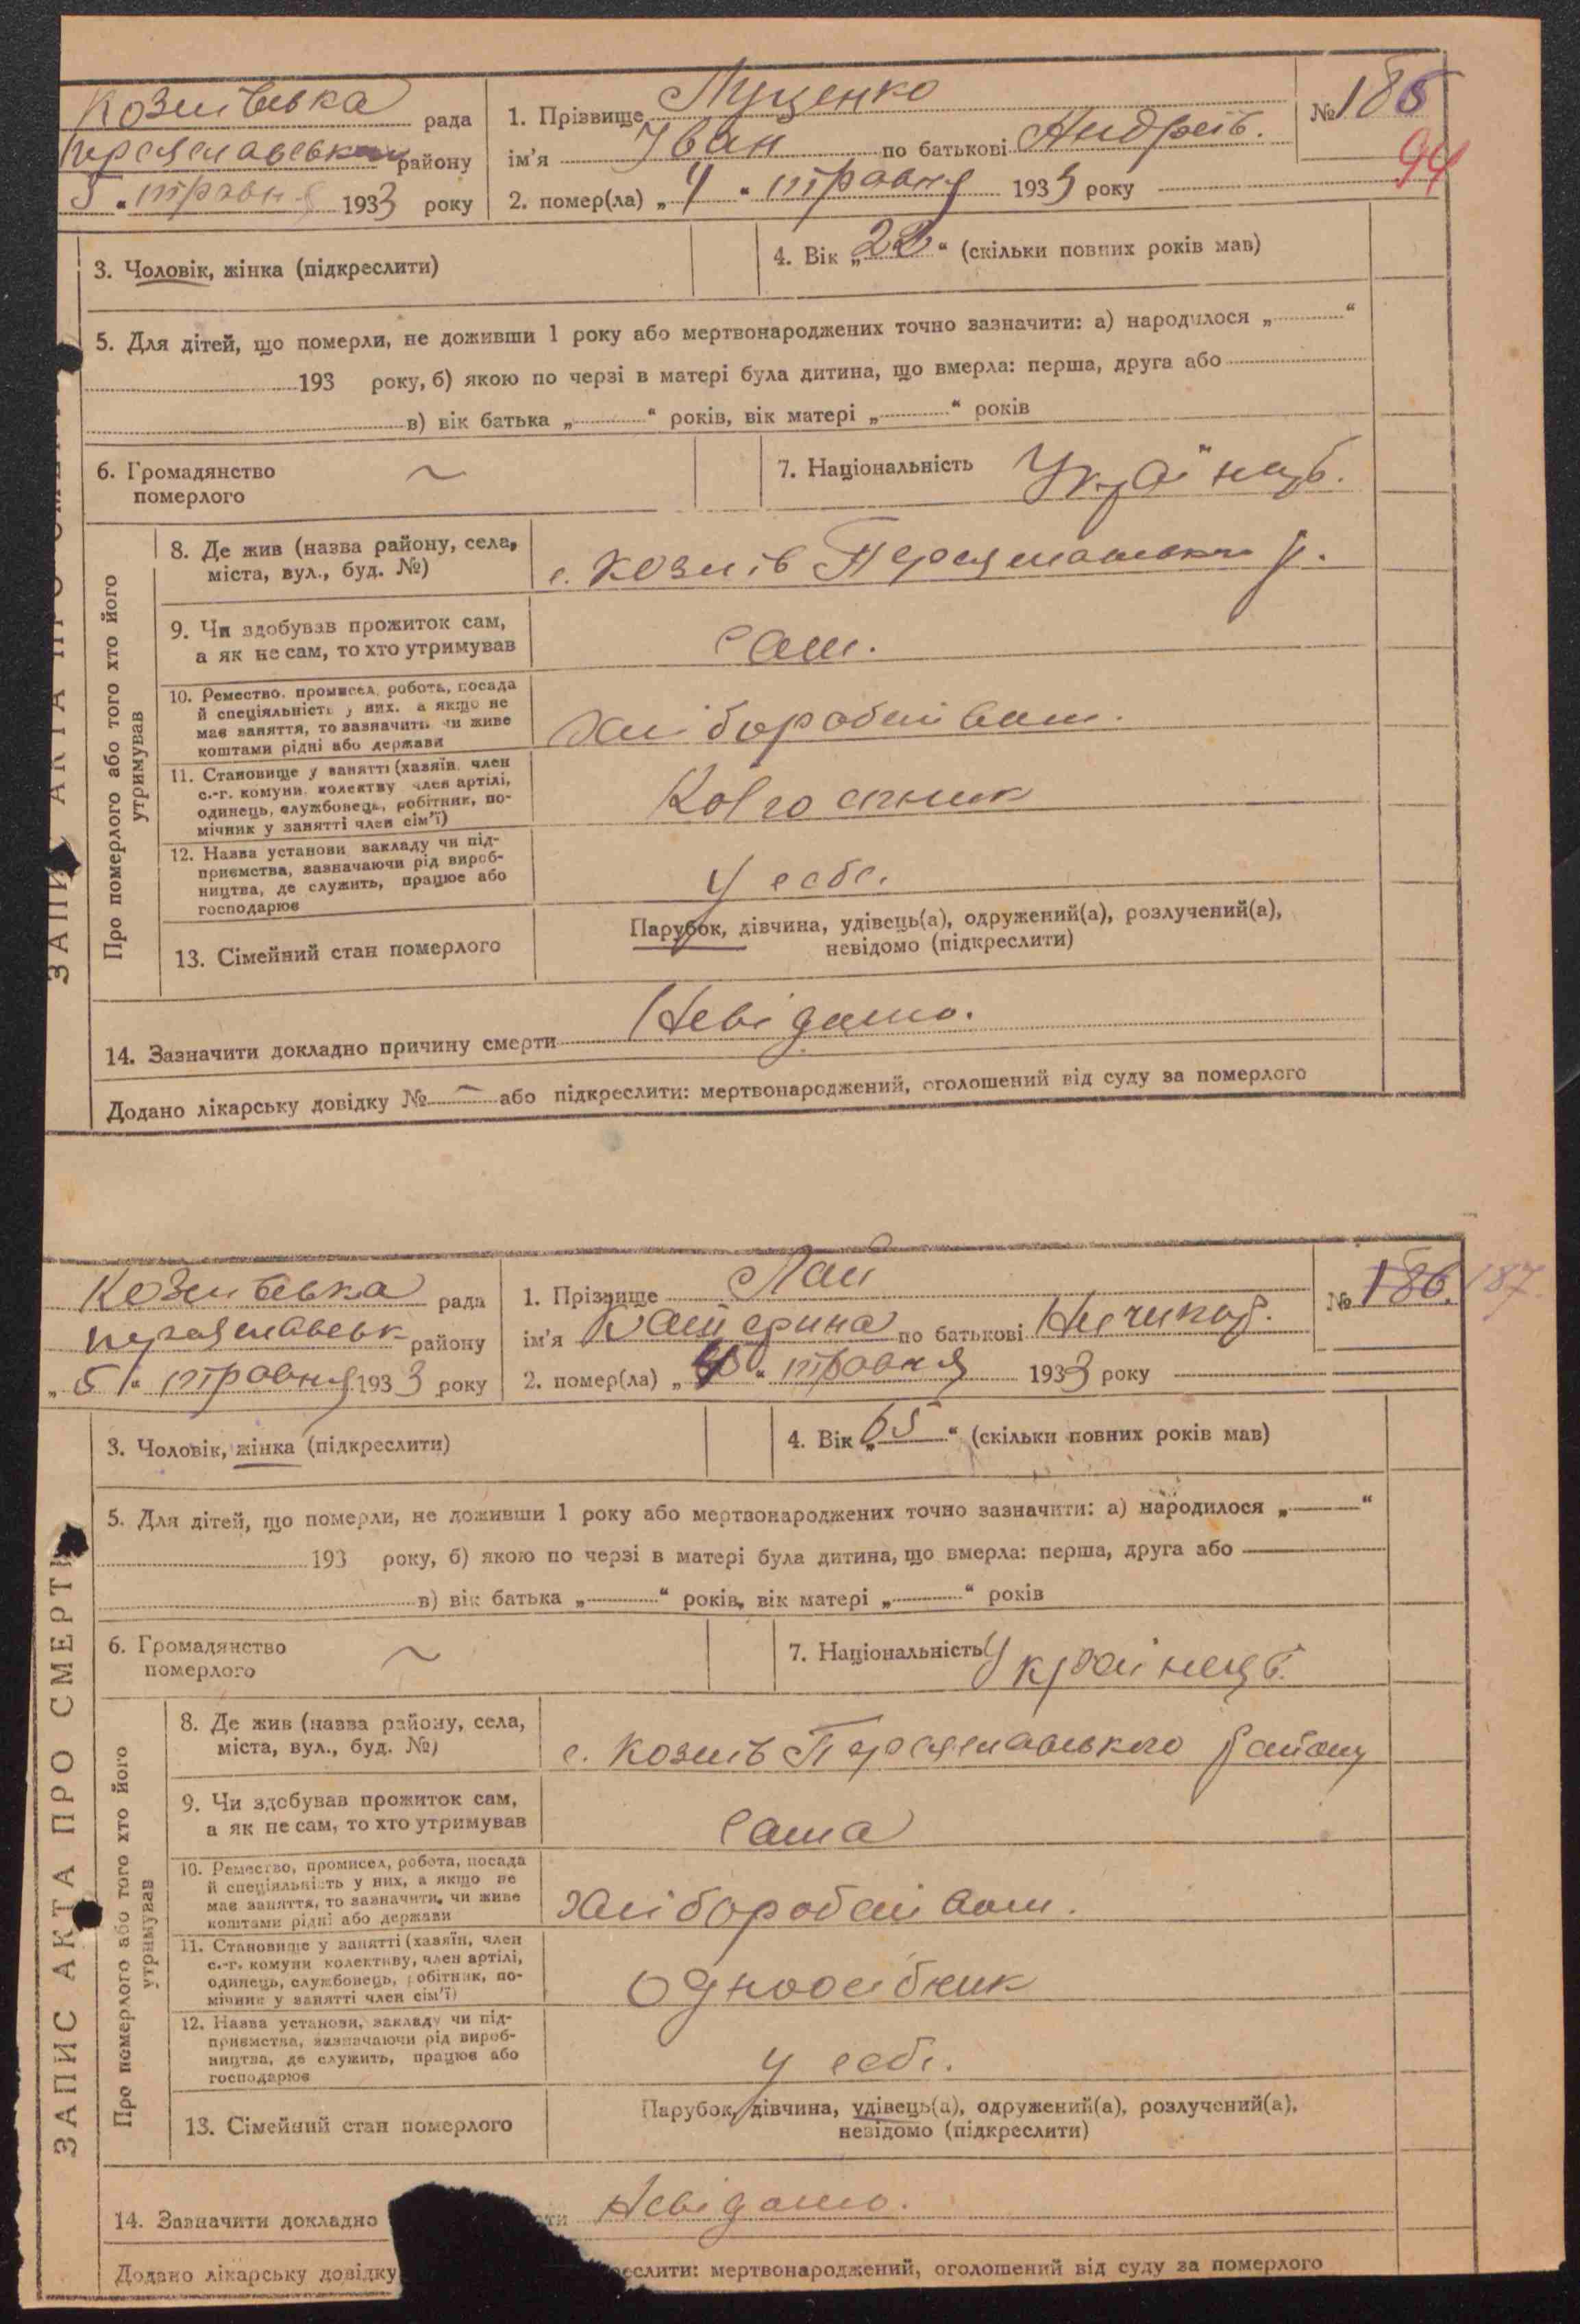 Козлівська рада
Переяславськ району
5 " травня 1933 року
1. Прізвище Луценко
ім'я Іван по батькові Андреїв.
2. помер(ла) „ 4 " травня 1933 року
№ 186
94
3. Чоловік, жінка (підкреслити)
4. Вік „ " (скільки повних років мав)
5. Для дітей, що померли, не доживши 1 року або мертвонароджених точно зазначити: а) народилося „ "
193 року, б) якою по черзі в матері була дитина, що вмерла: перша, друга або
в) вік батька „ " років, вік матері „ " років
6. Громадянство
померлого
~
7. Національність
ЗАПИС АКТА ПРО СМЕРТЬ
Про померлого або того хто його
утримував
8. Де жив (назва району, села,
міста, вул., буд. №)
с. Козлів Переяславськ р.
9. Чи здобував прожиток сам,
а як не сам, то хто утримував
сам.
10. Ремество, промисел, робота, посада
й спеціяльність у них, а якщо не
має заняття, то зазначити, чи живе
коштами рідні або держави
хлiборобтвом.
11. Становище у занятті (хазяїн, член
с.-г. комуни, колективу, член артілі,
одинець, службовець, робітник, по-
мічник у занятті член сім'ї)
Колгоспник
12. Назва установи, закладу чи під-
приємства, зазначаючи рід вироб-
ництва, де служить, працює або
господарює
у себе.
13. Сімейний стан померлого
Парубок, дівчина, удівець(а), одружений(а), розлучений(а),
невідомо (підкреслити)
14. Зазначити докладно причину смерти Невідомо.
Додано лікарську довідку № — або підкреслити: мертвонароджений, оголошений від суду за померлого
Козлівська рада
Переяславськ району
„ 5 " травня 1933 року
1. Прізвище Лай
ім'я Катерина по батькові
2. помер(ла) „ 4 " травня 1933 року
№ 186. 187.
3. Чоловік, жінка (підкреслити)
4. Вік „ 65 " (скільки повних років мав)
5. Для дітей, що померли, не доживши 1 року або мертвонароджених точно зазначити: а) народилося „ "
193 року, б) якою по черзі в матері була дитина, що вмерла: перша, друга або
в) вік батька „ " років, вік матері „ " років
6. Громадянство
померлого
~
7. Національність
ЗАПИС АКТА ПРО СМЕРТЬ
Про померлого або того хто його
утримував
8. Де жив (назва району, села,
міста, вул., буд. №)
с. Козлів Переяславського району
9. Чи здобував прожиток сам,
а як не сам, то хто утримував
Сама
10. Ремество, промисел, робота, посада
й спеціяльність у них, а якщо не
має заняття, то зазначити, чи живе
коштами рідні або держави
хліборобтвом.
11. Становище у занятті (хазяїн, член
с.-г. комуни колективу, член артілі,
одинець, службовець, робітник, по-
мічник у занятті член сім'ї)
Одноосібник
12. Назва установи, закладу чи під-
приємства, зазначаючи рід вироб-
ництва, де служить, працює або
господарює
у себе.
13. Сімейний стан померлого
Парубок, дівчина, удівець(а), одружений(а), розлучений(а),
невідомо (підкреслити)
14. Зазначити докладно ти Невідомо.
Додано лікарську довідку еслити: мертвонароджений, оголошений від суду за померлого